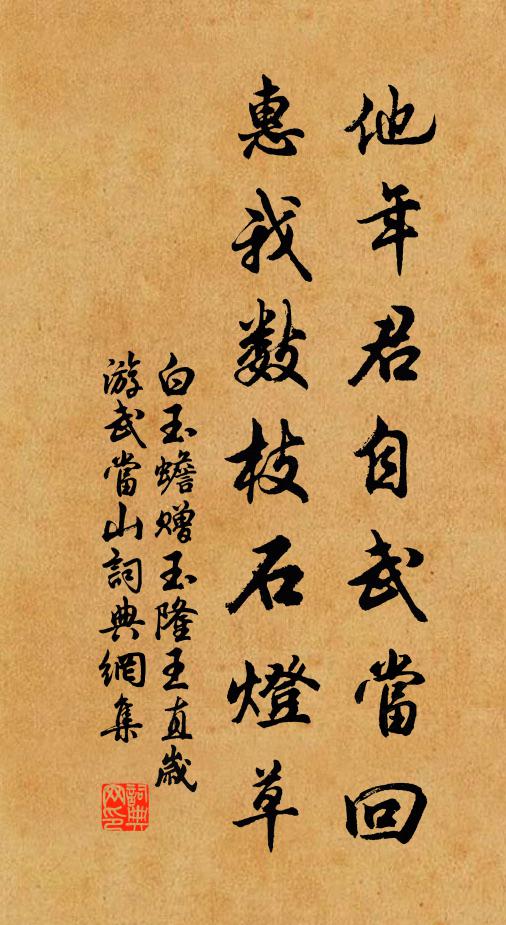 他年君自武當回
惠我数枝石燈草
白玉蟾赠玉隆王直歲
游武當山詞典網集
詞典网印